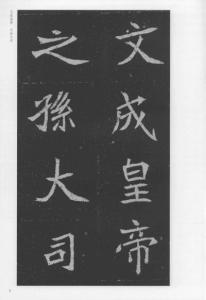 文成皇帝
之孫大司